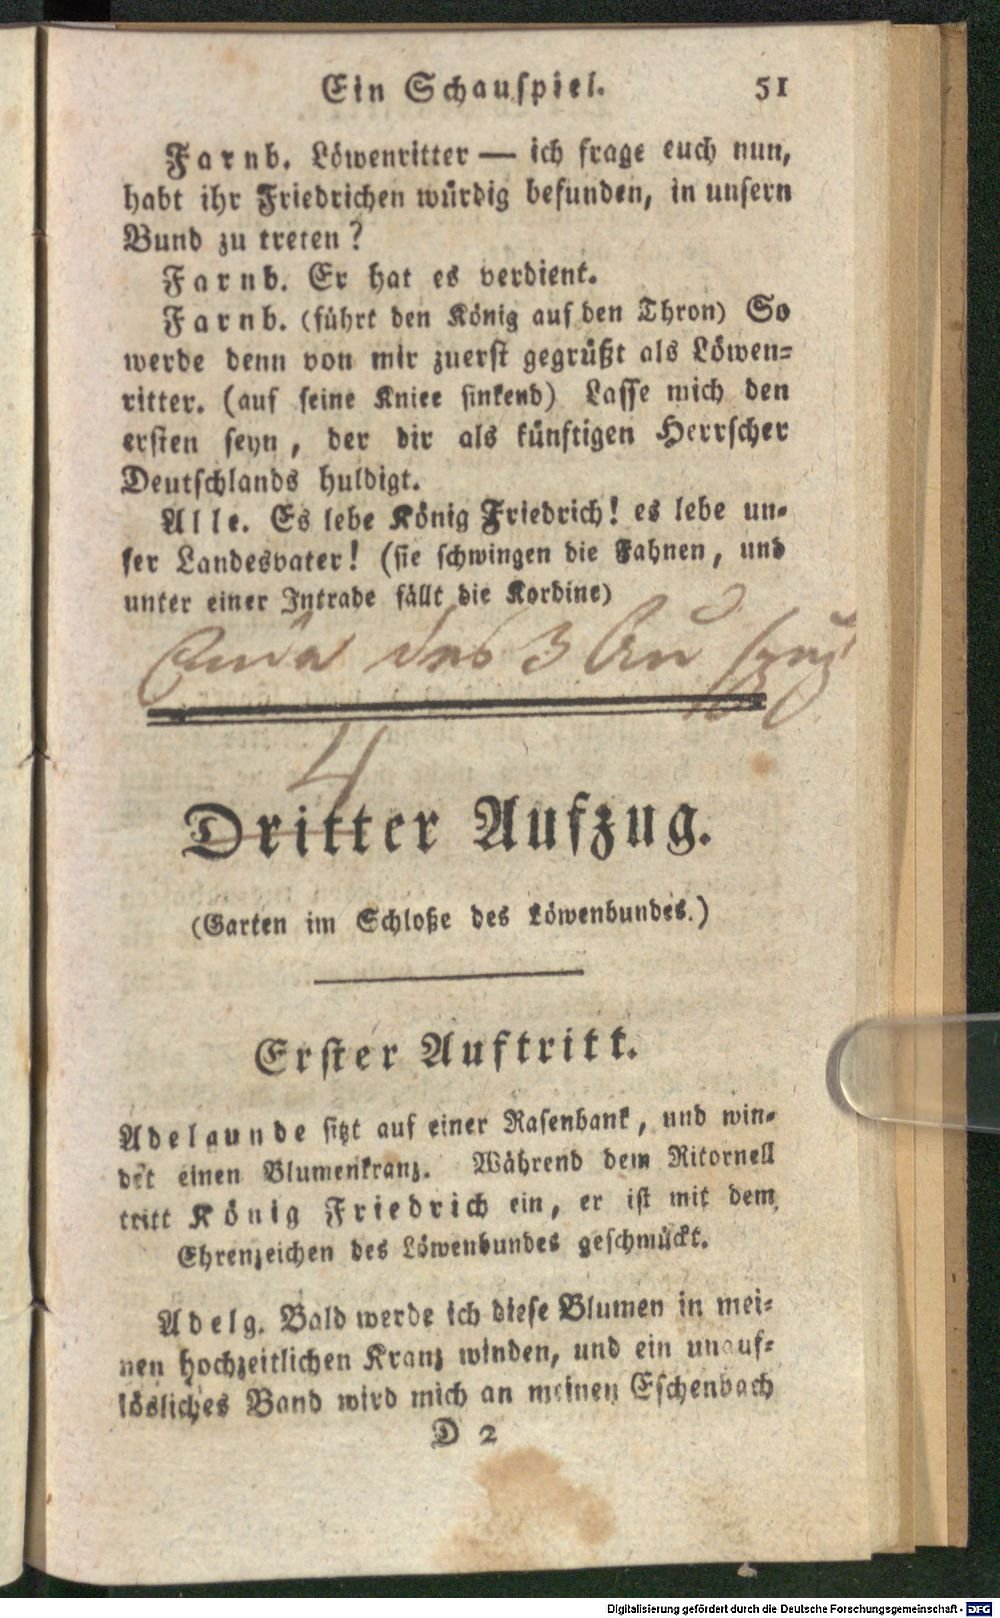 Ein Schauspiel. 51
Farnb. Löwenritter — ich frage euch nun,
habt ihr Friedrichen würdig befunden, in unsern
Bund zu treten?
Farnb. Er hat es verdient.
Farnb. (führt den König auf den Thron) So
werde denn von mir zuerst gegrüßt als Löwen-
ritter. (auf seine Kniee sinkend) Lasse mich den
ersten seyn, der dir als künftigen Herrscher
Deutschlands huldigt.
Alle. Es lebe König Friedrich! es lebe un-
ser Landesvater! (sie schwingen die Fahnen, und
unter einer Intrade fällt die Kordine)
des 3
4
Dritter Aufzug.
(Garten im Schloße des Löwenbundes.)
Erster Auftritt.
Adelgunde sitzt auf einer Rasenbank, und win-
det einen Blumenkranz. Während dem Ritornell
tritt König Friedrich ein, er ist mit dem
Ehrenzeichen des Löwenbundes geschmückt.
Adelg. Bald werde ich diese Blumen in mei-
nen hochzeitlichen Kranz winden, und ein unauf-
lösliches Band wird mich an meinen Eschenbach
D 2
Digitalisierung gefördert durch die Deutsche Forschungsgemeinschaft - DFG